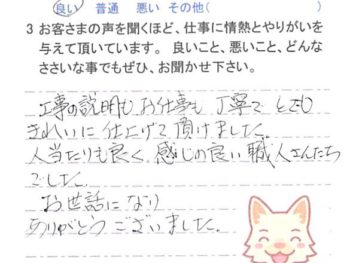 良い 普通 悪い その他( )
3 お客さまの声を聞くほど、仕事に情熱とやりがいを
与えて頂いています。 良いこと、悪いこと、どんな
ささいな事でもぜひ、お聞かせ下さい。
工事の説明も お仕事も 丁寧で とても
きれいに 仕上げて 頂けました。
人当たりも良く 感じの良い 職人さんたち
でした。
お世話になり
ありがとう ございました。